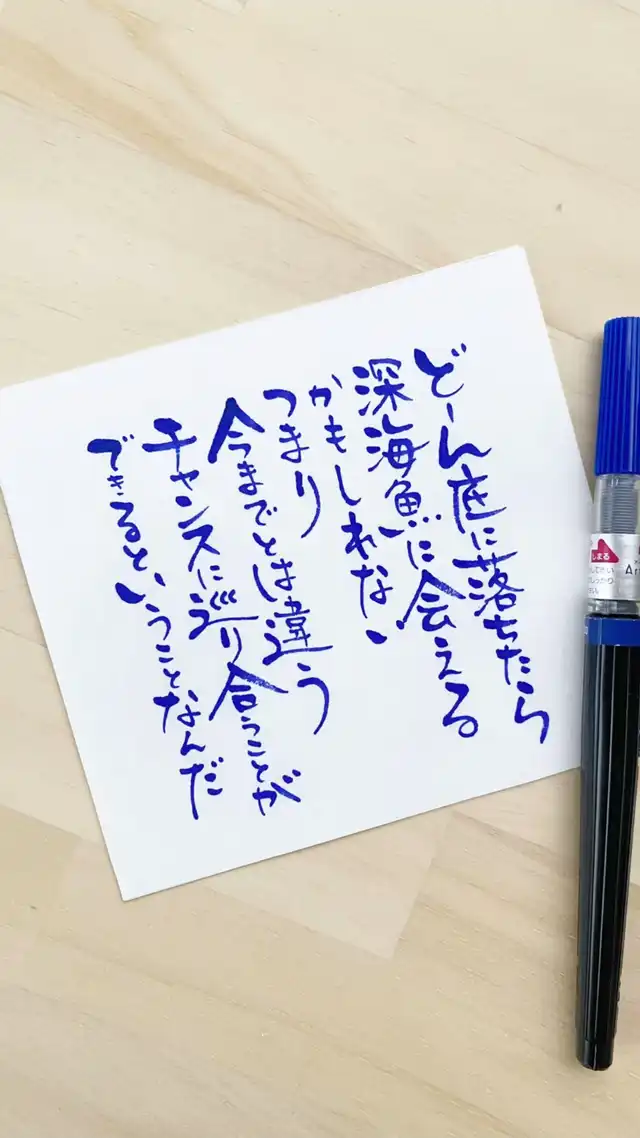 どーん底に落ちたら
深海魚に会える
かもしれない
つまり
今までとは違う
チャンスに巡り合うことが
できるということなんだ
しまる